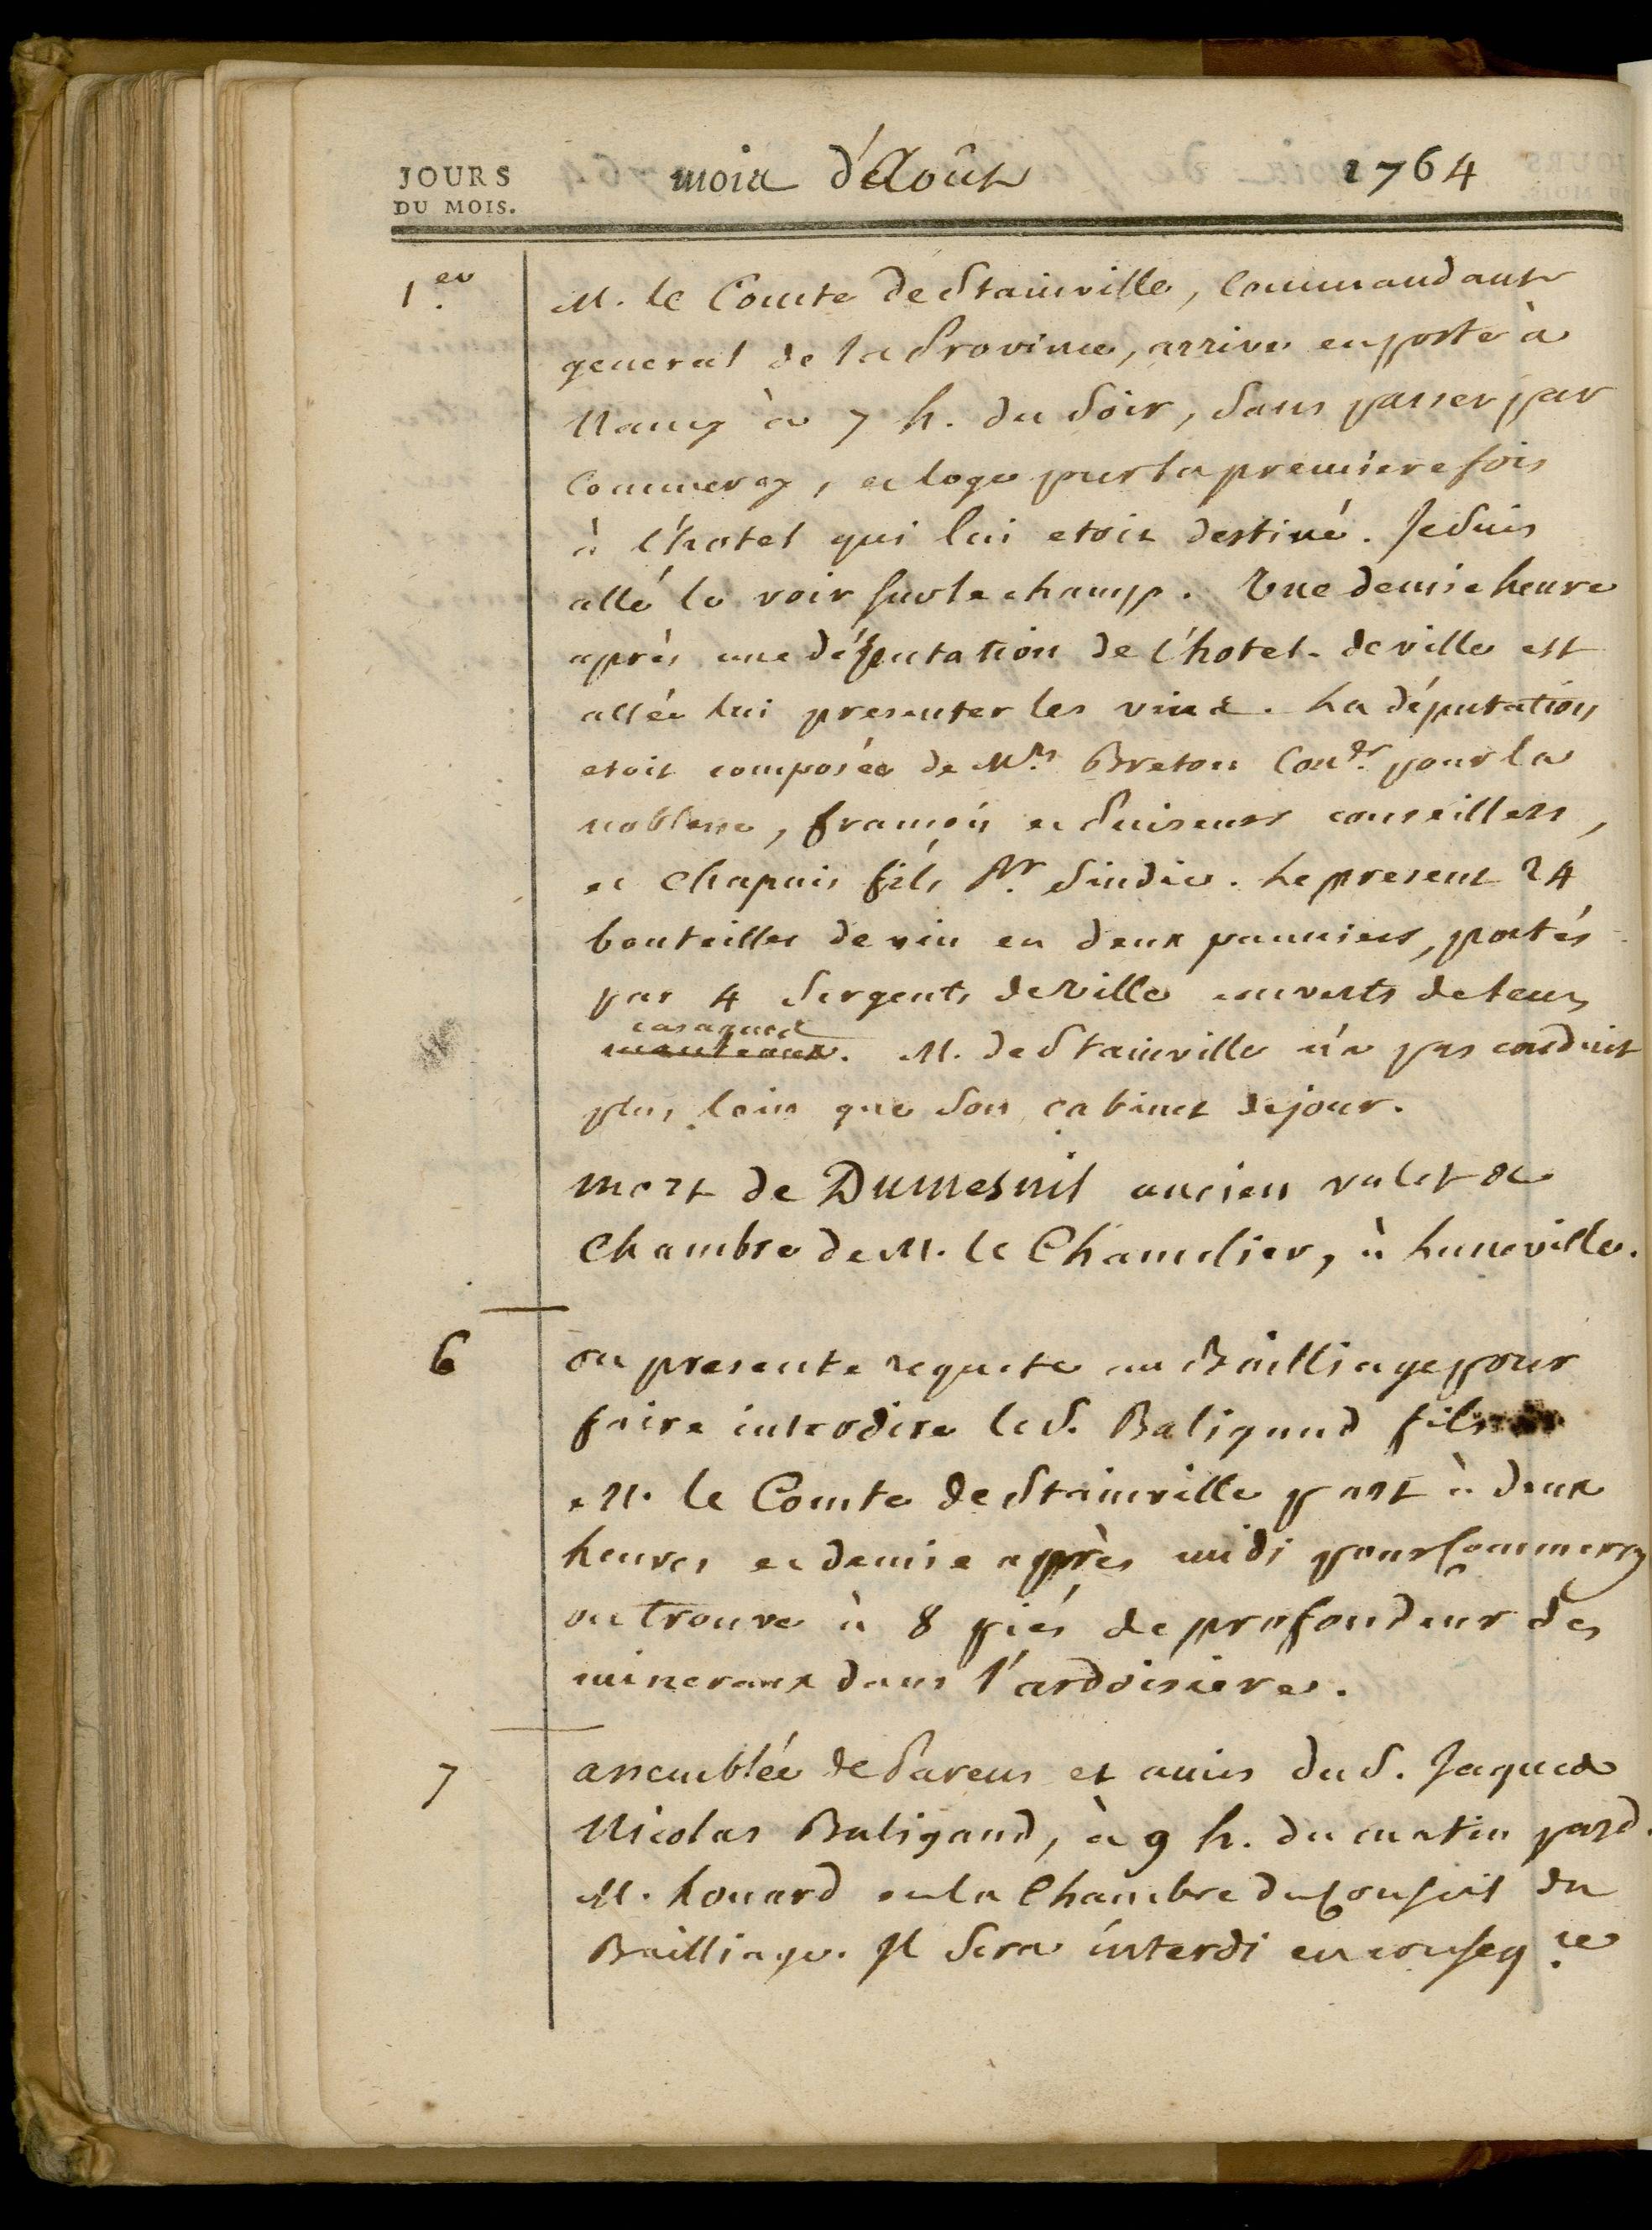 JOURS
DU MOIS.
mois d'Août 1764
1.er
M. le Comte de Stainville, Commandant
general de la Province, arrive en poste à
Nancy à 7 h. du Soir, Sans passer par
Commercy, et loge pour la premiere fois
à l'hotel qui lui etoit destiné. Je Suis
allé le voir Sur le champ. Une demie heure
après une députation de l'hotel de ville est
allée lui presenter les vins. La députation
etoit composée de Mrs. Breton Conler. pour la
noblesse, françois et Puiseur conseillers,
et Chapuis fils Pr. Sindic. Le present 24
bouteilles de vin en deux panniers, portés
par 4 Sergents de Ville couverts de leurs
casaques
manteaux. M. de Stainville n'a pas conduit
plus loin que Son cabinet de jour.
mort de Dumesnil ancien valet de
Chambre de M. le Chancelier, à Luneville.
6
on presente requete au Bailliage pour
faire interdire le S. Baligand fils
M. le Comte de Stainville part à deux
heures et demie après midi pour Commercy
on trouve à 8 piés de profondeur des
mineraux dans l'ardoisiere.
7
assemblée de Parens et amis du S. Jaques
Nicolas Baligand, à 9 h. du matin pard.
M. Rouard en la Chambre du Conseil du
Bailliage. Il Sera interdi en conseq.ce